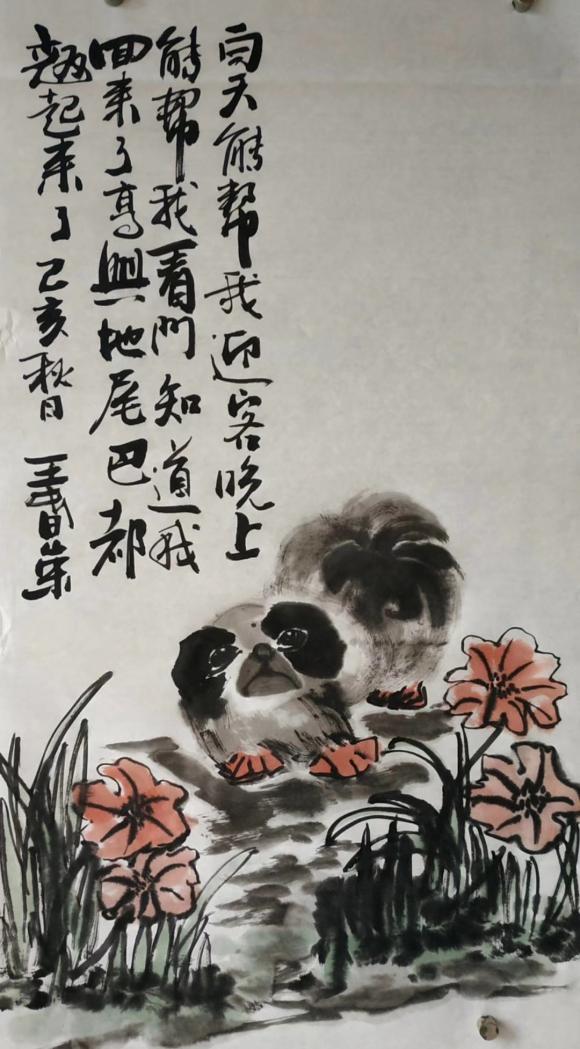 白天能帮我迎客晚上
能帮我看門知道我
回来了高興地尾巴都
翘起来了己亥秋日 王春荣